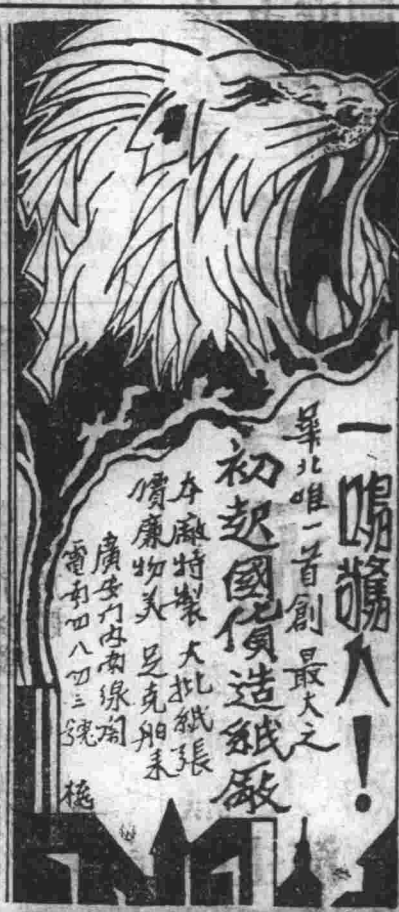 一鳴驚人！
華北唯一首創最大之
初起國貨造紙廠
本廠特製大批紙張
價廉物美足克舶来
廣安门内南線閣
電南四八四三號